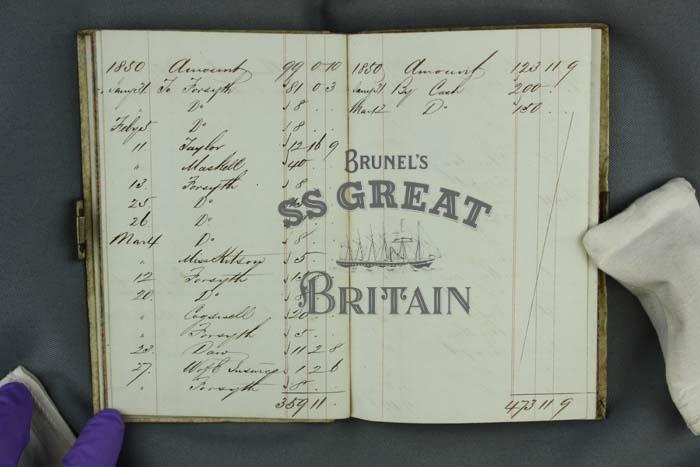 1850 Amount 99 0 10
Jany 31 To Forsyth 81 0 3
" Do 8 . .
Feby 5 Do 8 . .
11 Taylor 12 16 9
" Maskell 40 . .
13. Forsyth 8 . .
25 Do
26 Do
Mar 4 Do 8 .
" Miss Kitson 5
12 Forsyth
20. Do 8
" Cogswell 20 .
" Forsyth 5 .
23. Daw 11 2 8
27. W of E Insurance 1 2 6
" Forsyth 8 . .
359 11 .
1850 Amount 123 11 9
Jany 31 By Cash 200 . .
Mar 12 Do 150 . .
473 11 9
BRUNEL'S
SS GREAT
BRITAIN